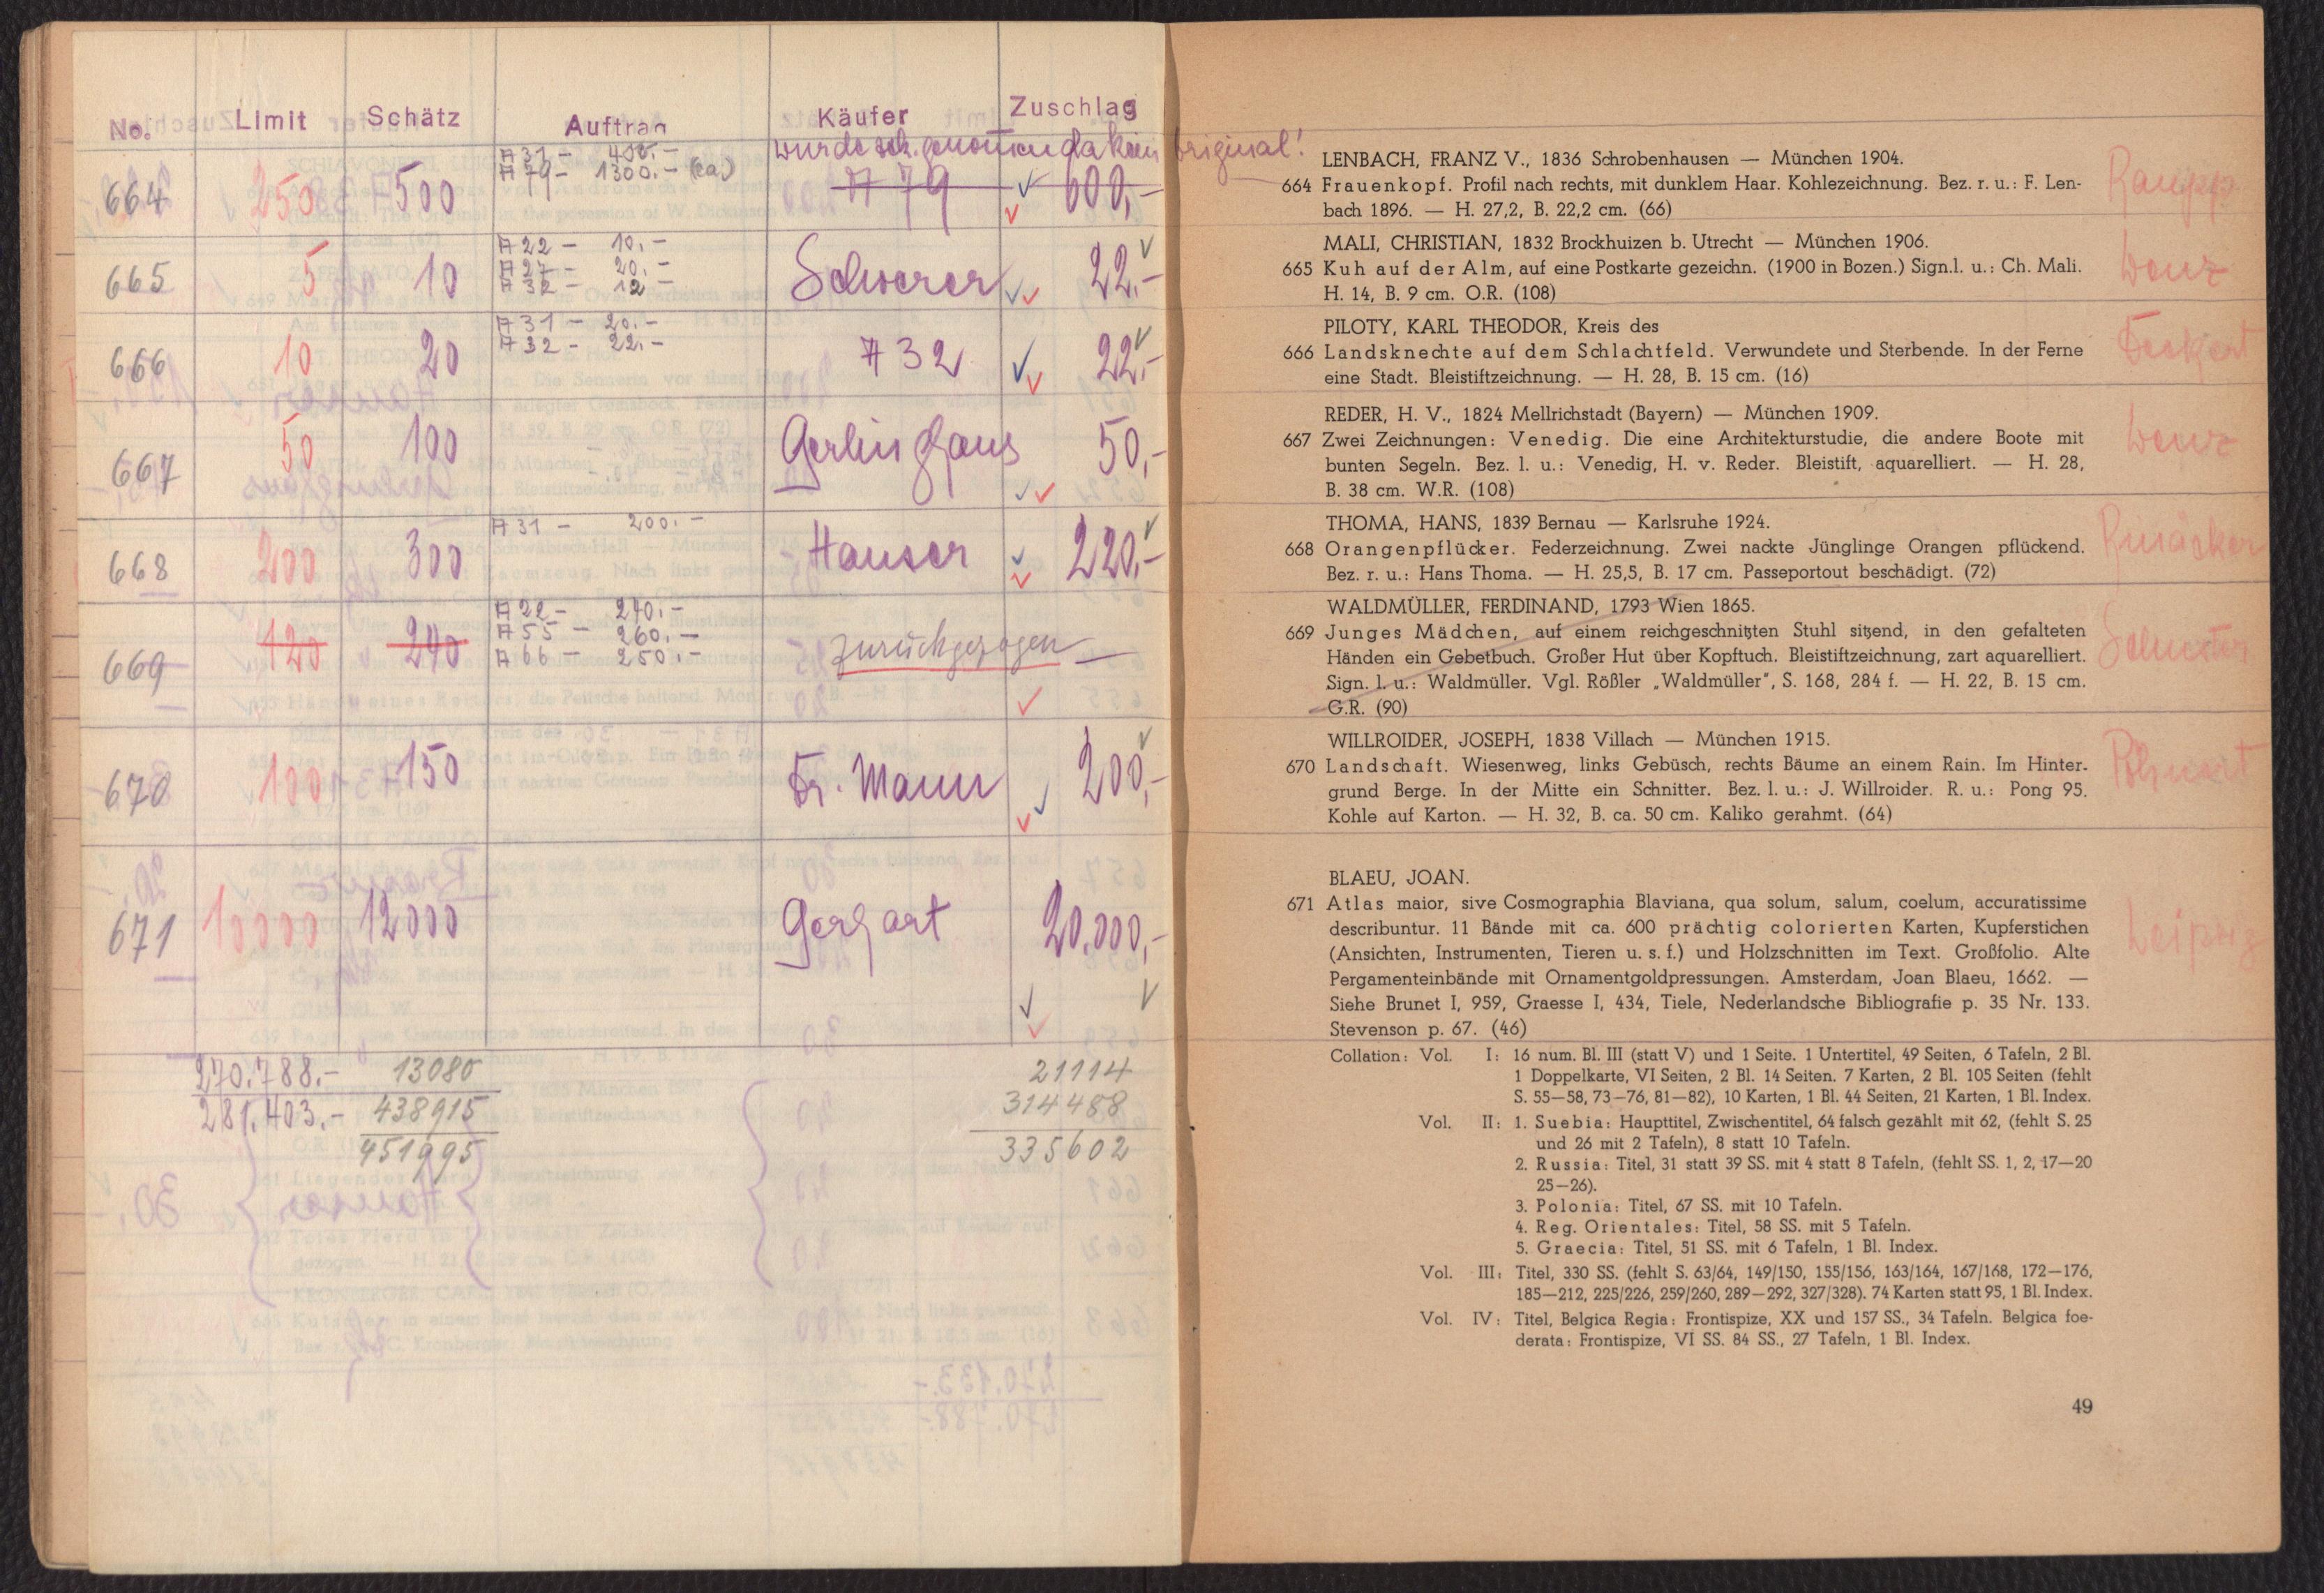 No. Limit Schätz Auftrag Käufer Zuschlag
wurde zurückgenommen da kein Original!
664 250 500 A 31 – 400.– A 79 600,–
A 79 – 1300.– (ca.)
665 5 10 A 22 – 10.– Scherer 22,–
A 27 – 20.–
A 32 – 12–
666 10 20 A 31 – 20.– A 32 22,–
A 32 – 22.–
667 50 100 Gerlinghaus 50,–
668 200 300 A 31 – 200.– Hauser 220,–
669 120 240 A 22 – 240.– zurückgezogen –
A 55 – 260.–
A 66 – 250.–
670 100 150 Fr. Mann 200,–
671 10000 12000 Gerhart 20.000,–
270.788.– 13080 21114
281.403.– 438915 314488
451995 335602
LENBACH, FRANZ V., 1836 Schrobenhausen — München 1904.
664 Frauenkopf. Profil nach rechts, mit dunklem Haar. Kohlezeichnung. Bez. r. u.: F. Len-
bach 1896. — H. 27,2, B. 22,2 cm. (66)
Raupp
MALI, CHRISTIAN, 1832 Brockhuizen b. Utrecht — München 1906.
665 Kuh auf der Alm, auf eine Postkarte gezeichn. (1900 in Bozen.) Sign.l. u.: Ch. Mali.
H. 14, B. 9 cm. O.R. (108)
Wenz
PILOTY, KARL THEODOR, Kreis des
666 Landsknechte auf dem Schlachtfeld. Verwundete und Sterbende. In der Ferne
eine Stadt. Bleistiftzeichnung. — H. 28, B. 15 cm. (16)
REDER, H. V., 1824 Mellrichstadt (Bayern) — München 1909.
667 Zwei Zeichnungen: Venedig. Die eine Architekturstudie, die andere Boote mit
bunten Segeln. Bez. l. u.: Venedig, H. v. Reder. Bleistift, aquarelliert. — H. 28,
B. 38 cm. W.R. (108)
Wenz
THOMA, HANS, 1839 Bernau — Karlsruhe 1924.
668 Orangenpflücker. Federzeichnung. Zwei nackte Jünglinge Orangen pflückend.
Bez. r. u.: Hans Thoma. — H. 25,5, B. 17 cm. Passeportout beschädigt. (72)
WALDMÜLLER, FERDINAND, 1793 Wien 1865.
669 Junges Mädchen, auf einem reichgeschnitzten Stuhl sitzend, in den gefalteten
Händen ein Gebetbuch. Großer Hut über Kopftuch. Bleistiftzeichnung, zart aquarelliert.
Sign. l. u.: Waldmüller. Vgl. Rößler „Waldmüller", S. 168, 284 f. — H. 22, B. 15 cm.
G.R. (90)
Schuster
WILLROIDER, JOSEPH, 1838 Villach — München 1915.
670 Landschaft. Wiesenweg, links Gebüsch, rechts Bäume an einem Rain. Im Hinter-
grund Berge. In der Mitte ein Schnitter. Bez. l. u.: J. Willroider. R. u.: Pong 95.
Kohle auf Karton. — H. 32, B. ca. 50 cm. Kaliko gerahmt. (64)
BLAEU, JOAN.
671 Atlas maior, sive Cosmographia Blaviana, qua solum, salum, coelum, accuratissime
describuntur. 11 Bände mit ca. 600 prächtig colorierten Karten, Kupferstichen
(Ansichten, Instrumenten, Tieren u. s. f.) und Holzschnitten im Text. Großfolio. Alte
Pergamenteinbände mit Ornamentgoldpressungen. Amsterdam, Joan Blaeu, 1662. —
Siehe Brunet I, 959, Graesse I, 434, Tiele, Nederlandsche Bibliografie p. 35 Nr. 133.
Stevenson p. 67. (46)
Leipzig
Collation: Vol. I: 16 num. Bl. III (statt V) und 1 Seite. 1 Untertitel, 49 Seiten, 6 Tafeln, 2 Bl.
1 Doppelkarte, VI Seiten, 2 Bl. 14 Seiten. 7 Karten, 2 Bl. 105 Seiten (fehlt
S. 55—58, 73—76, 81—82), 10 Karten, 1 Bl. 44 Seiten, 21 Karten, 1 Bl. Index.
Vol. II: 1. Suebia: Haupttitel, Zwischentitel, 64 falsch gezählt mit 62, (fehlt S. 25
und 26 mit 2 Tafeln), 8 statt 10 Tafeln.
2. Russia: Titel, 31 statt 39 SS. mit 4 statt 8 Tafeln, (fehlt SS. 1, 2, 17—20
25—26).
3. Polonia: Titel, 67 SS. mit 10 Tafeln.
4. Reg. Orientales: Titel, 58 SS. mit 5 Tafeln.
5. Graecia: Titel, 51 SS. mit 6 Tafeln, 1 Bl. Index.
Vol. III: Titel, 330 SS. (fehlt S. 63/64, 149/150, 155/156, 163/164, 167/168, 172—176,
185—212, 225/226, 259/260, 289—292, 327/328). 74 Karten statt 95, 1 Bl. Index.
Vol. IV: Titel, Belgica Regia: Frontispize, XX und 157 SS., 34 Tafeln. Belgica foe-
derata: Frontispize, VI SS. 84 SS., 27 Tafeln, 1 Bl. Index.
49